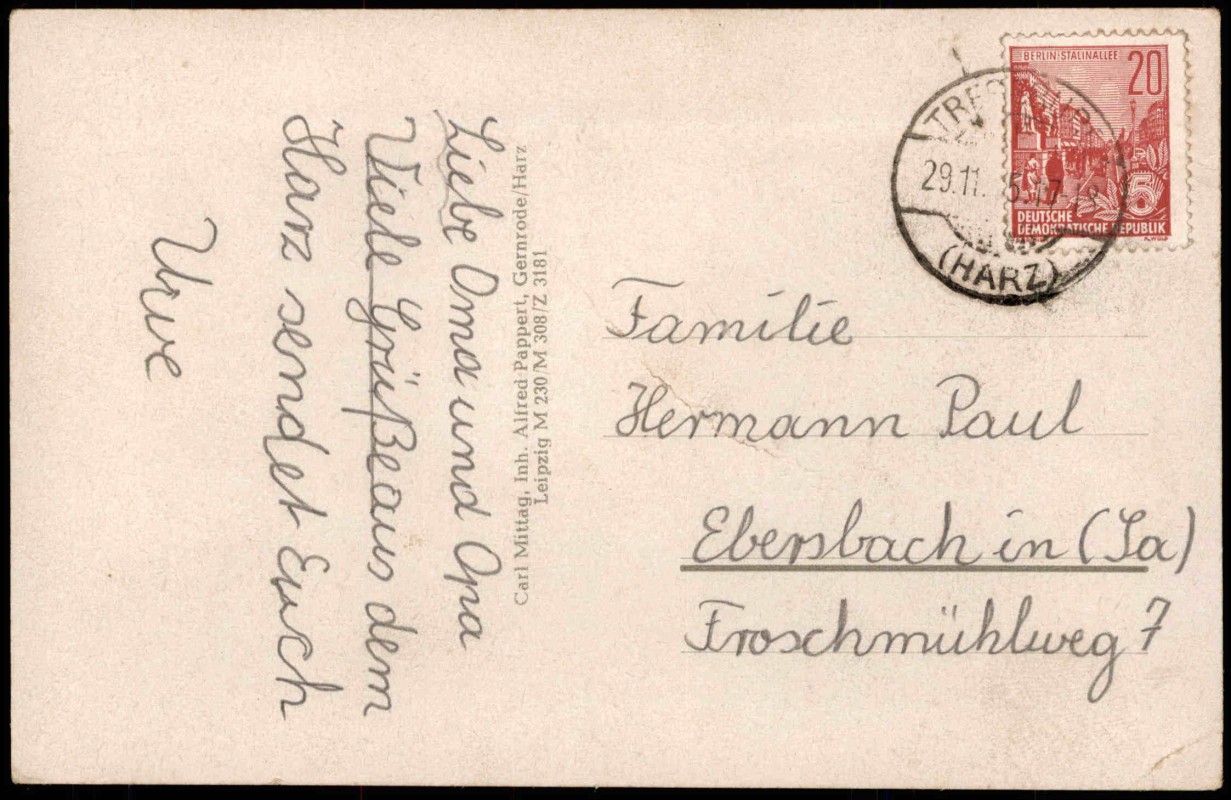 Liebe Oma und Opa
Viele Grüße aus dem
Harz sendet Euch
Uwe
Carl Mittag, Inh. Alfred Pappert, Gernrode/Harz
Leipzig M 230/M 308/Z 3181
BERLIN-STALINALLEE
20
5
DEUTSCHE
DEMOKRATISCHE REPUBLIK
29.11.
(HARZ)
Familie
Hermann Paul
Ebersbach in (Sa)
Froschmühlweg 7